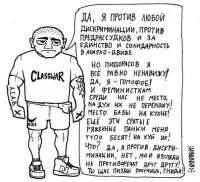 ДА, Я ПРОТИВ ЛЮБОЙ
ДИСКРИМИНАЦИИ, ПРОТИВ
ПРЕДРАССУДКОВ И ЗА
ЕДИНСТВО И СОЛИДАРНОСТЬ
В АНАРХО-ДВИЖЕ.
НО ПИДОРАСОВ Я
ВСЕ РАВНО НЕНАВИЖУ!
ДА, Я - ГОМОФОБ!
И ФЕМИНИСТКАМ
СРЕДИ НАС НЕ МЕСТО,
НА ДУХ ИХ НЕ ПЕРЕНОШУ!
МЕСТО БАБЫ НА КУХНЕ!
ЕЩЕ ЭТИ СРАНЫЕ
РЯЖЕННЫЕ ПАНКИ МЕНЯ
ТУПО БЕСЯТ! НА ХУЙ ИХ!
ЧТО? ДА, Я ПРОТИВ ДИСКРИ-
МИНАЦИИ, НЕТ, МОИ ВЗГЛЯДЫ
НЕ ПРОТИВОРЕЧАТ ДРУГ ДРУГУ!
ТЫ ЩАС ПИЗДЫ ПОЛУЧИШЬ, ГНИДА!
CLASSWAR